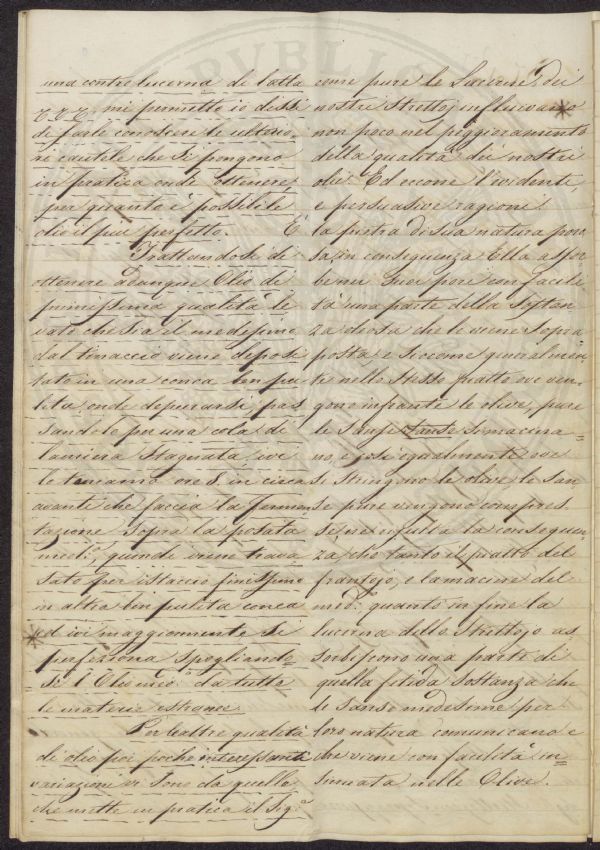 una contro lucerna di latta
&c &c &c, mi permette io dissi
di farle conoscere le ulterio=
ri cautele che si pongono
in pratica onde ottenere,
per quanto è possibile
olio il più perfetto.
Trattandosi di
ottenere adunque Olio di
primissima qualità le
vato che sia il medesimo
dal tinaccio viene deposi
tato in una conca ben pu
lita onde depurarsi pas
sandolo per una cola di
lamiera stagnata ivi
le teniamo ore 8 in circa
avanti che faccia la fermen
tazione sopra la posata
med:ª, quindi viene trava
sato per istaccio finissimo
in altra ben pulita conca
ed ivi maggiormente si
perfeziona spogliando=
si l'Olio med:º da tutte
le materie estranee.
Per l'altre qualità
di olio poi poche interessanti
variazioni vi sono da quelle
che mette in pratica il Sigr.
come pure le Lucerne, dei
nostri Strettoj influivano
non poco nel peggioramento
della qualità dei nostri
olii. Ed eccone l'evidenti
e persuasive ragioni
È la pietra di sua natura poro
sa, in conseguenza Ella assor
be nei suoi pori con facili
tà una parte della sostan
za oleosa che le viene sopra
posta e siccome generalmen
te nello stesso piatto ove ven=
gono infrante le olive, pure
le Sanse si macina=
no e così egualmente ove
si stringono le olive le san
se pure vengono compres
se, ne risulta la conseguen
za che tanto il piatto del
frantojo, e la macine del
med:º quanto in fine la
lucerna dello Strettojo as
sorbiscono una parte di
quella fetida sostanza che
le Sanse medesime per
loro natura comunicano e
che viene con facilità in=
sinuata nelle Olive.